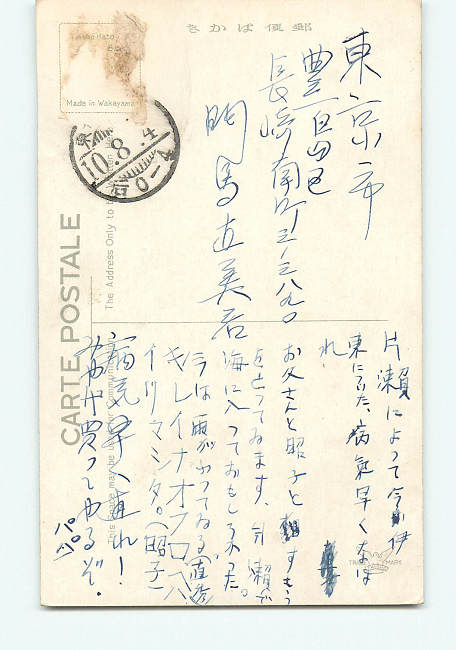 郵便ばかき
Made in Wakayama
10.8.4
CARTE POSTALE
The Address Only to
東京市
豊島区
長崎南町三ノ三八九〇
直美君
片瀬によって今伊
東についた、病気早くなほ
れ
お父さんと昭子とすもう
をとってゐます、片瀬で
海に入っておもしろかった。
今は雨がふってゐる
キレイナオフロヘ
イリマシタ。(昭子)
病気早く直れ!
みやげ買ってやるぞ。
パパ
TRADE MARK